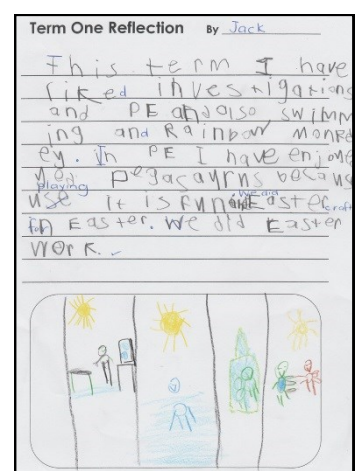 Term One Reflection By Jack
This term I have
liked investigations
and PE and also swimm
ing and Rainbow Monk
ey. In PE I have enjoye
yed
playing becaus
use it is fun we did Easter craft
in Easter. We did Easter
work.